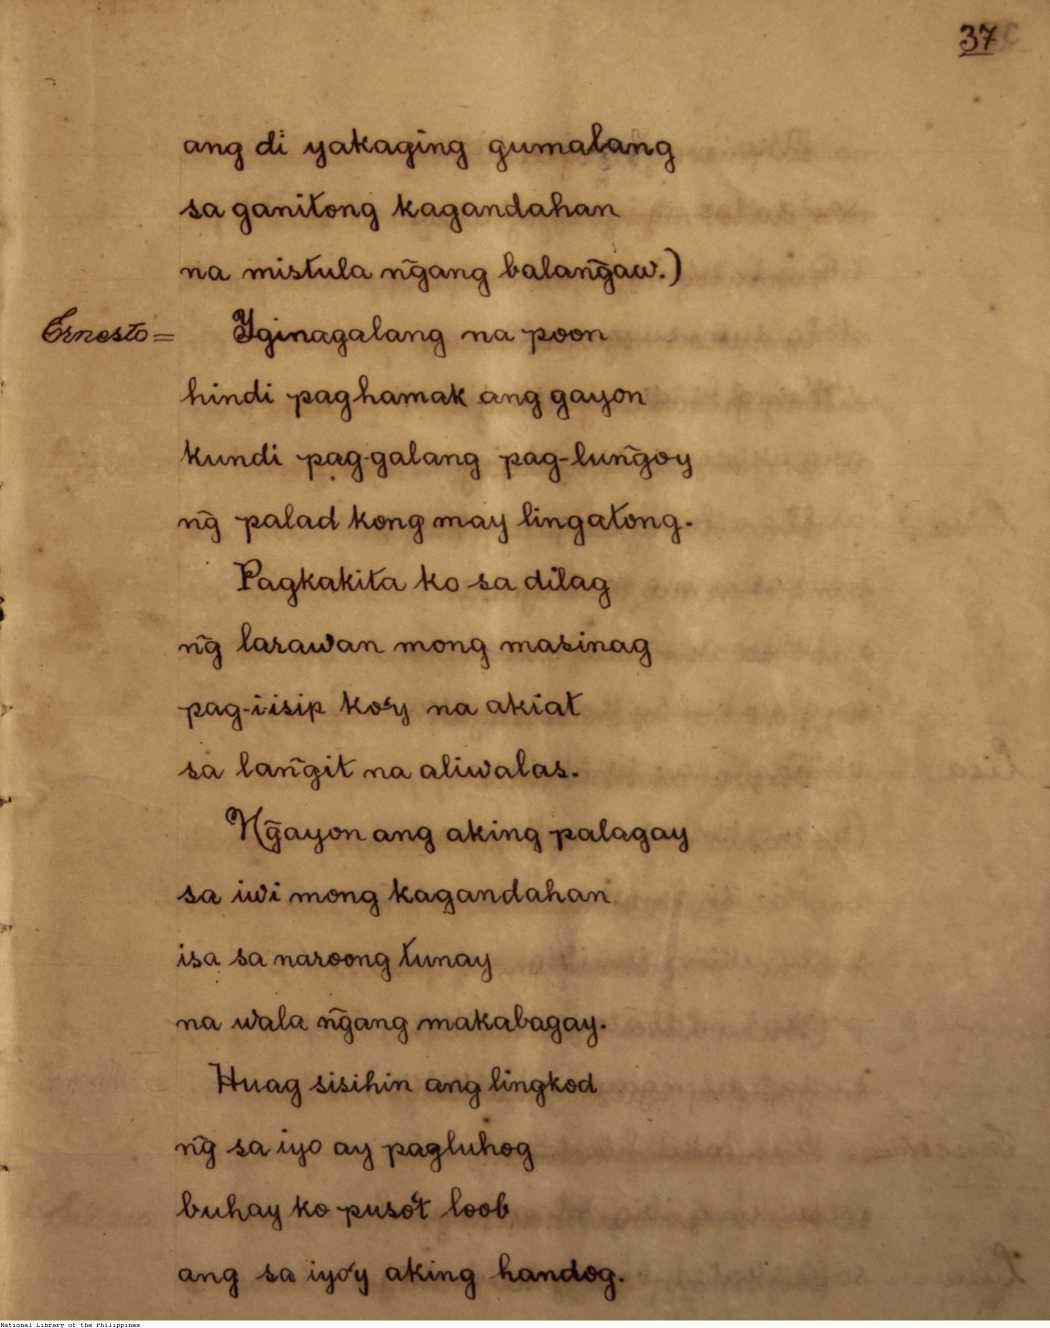 37
ang di yakaging gumalang
sa ganitong kagandahan
na mistula n͠gang balan͠gaw.)
Ernesto = Yginagalang na poon
hindi paghamak ang gayon
kundi pag-galang pag-lun͠goy
n͠g palad kong may lingatong.
Pagkakita ko sa dilag
n͠g larawan mong masinag
pag-iisip ko'y na akiat
sa lan͠git na aliwalas.
N͠gayon ang aking palagay
sa iwi mong kagandahan
isa sa naroong tunay
na wala n͠gang makabagay.
Huag sisihin ang lingkod
n͠g sa iyo ay pagluhog
buhay ko puso't loob
ang sa iyo'y aking handog.
National Library of the Philippines